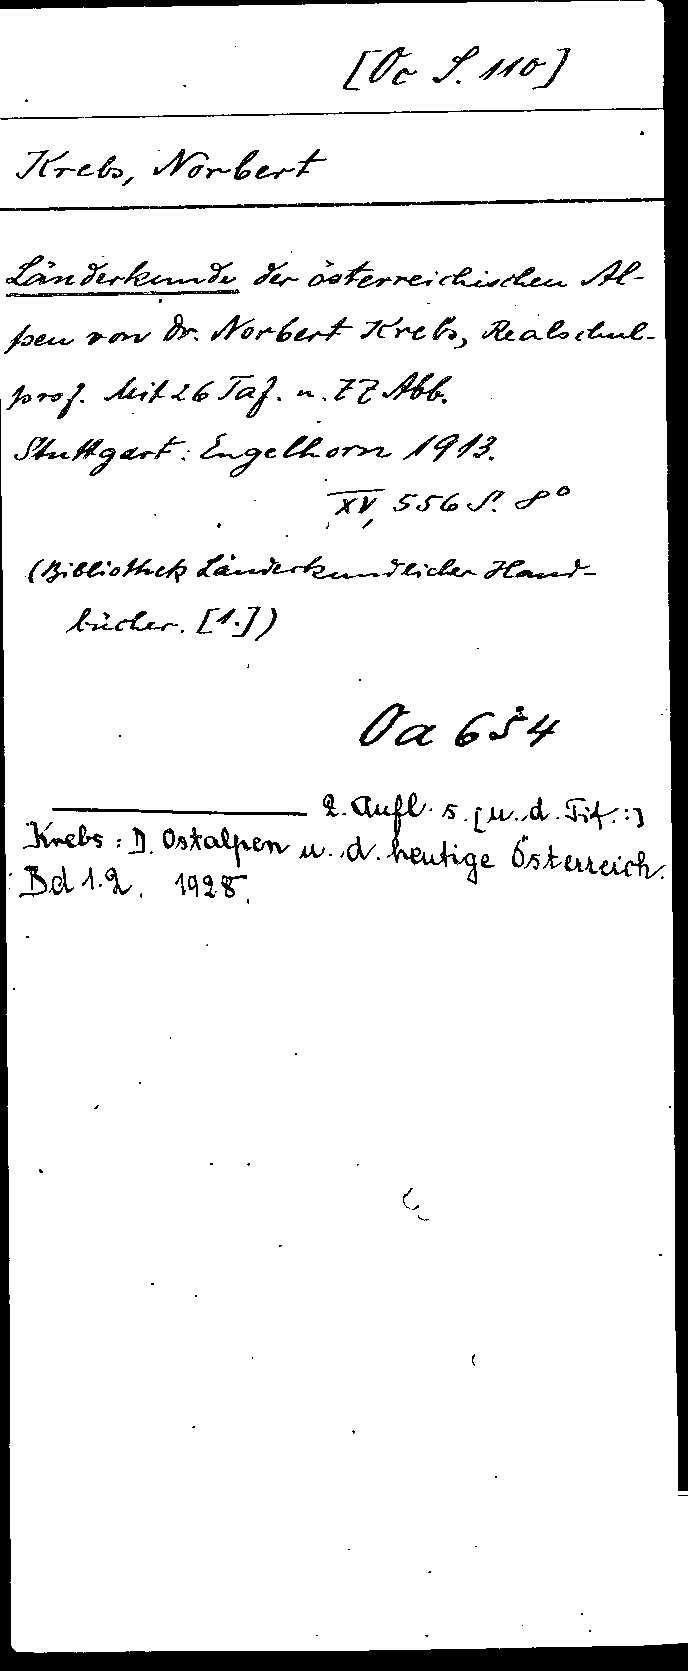 [Oc S. 110]
Krebs, Norbert
Länderkunde der österreichischen Al-
pen von Dr. Norbert Krebs, Realschul-
prof. Mit 26 Taf. u. 77 Abb.
Stuttgart: Engelhorn 1913.
XV, 556 S. 8°
(Bibliothek Länderkundlicher Hand-
bücher. [1.])
Oa 654
2. Aufl. s. [u. d. Tit.:]
Krebs: D. Ostalpen u. d. heutige Österreich.
Bd 1.2. 1928.